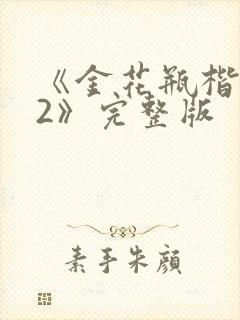 《金花瓶楷
2》完整版
素手朱颜